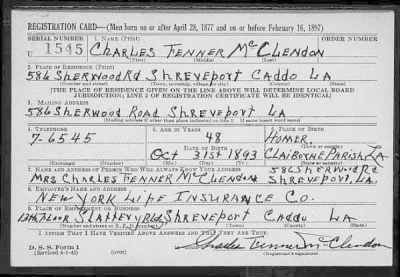 REGISTRATION CARD—(Men born on or after April 28, 1877 and on or before February 16, 1897)
SERIAL NUMBER 1. NAME (Print) ORDER NUMBER
U 1545 CHARLES TENNER McCLENDON
(First) (Middle) (Last)
2. PLACE OF RESIDENCE (Print)
586 SHERWOOD RD SHREVEPORT CADDO LA
(Number and street) (Town, township, village, or city) (County) (State)
[THE PLACE OF RESIDENCE GIVEN ON THE LINE ABOVE WILL DETERMINE LOCAL BOARD
JURISDICTION; LINE 2 OF REGISTRATION CERTIFICATE WILL BE IDENTICAL]
3. MAILING ADDRESS
586 SHERWOOD ROAD SHREVEPORT LA
[Mailing address if other than place indicated on line 2. If same insert word same]
4. TELEPHONE 5. AGE IN YEARS 6. PLACE OF BIRTH
7-6545 48 HOMER
DATE OF BIRTH (Town or county)
OCT 31ST 1893 CLAIBORNE PARISH LA
(Exchange) (Number) (Mo.) (Day) (Yr.) (State or country)
7. NAME AND ADDRESS OF PERSON WHO WILL ALWAYS KNOW YOUR ADDRESS 586 SHERWOOD RD
MRS CHARLES TENNER McCLENDON SHREVEPORT, LA.
8. EMPLOYER'S NAME AND ADDRESS
NEW YORK LIFE INSURANCE CO.
9. PLACE OF EMPLOYMENT OR BUSINESS
12TH FLOOR SLATTERY BLDG SHREVEPORT CADDO LA
(Number and street or R. F. D. number) (Town) (County) (State)
I AFFIRM THAT I HAVE VERIFIED ABOVE ANSWERS AND THAT THEY ARE TRUE.
D. S. S. Form 1
(Revised 4-1-42) Charles Tenner McClendon
(Registrant's signature)